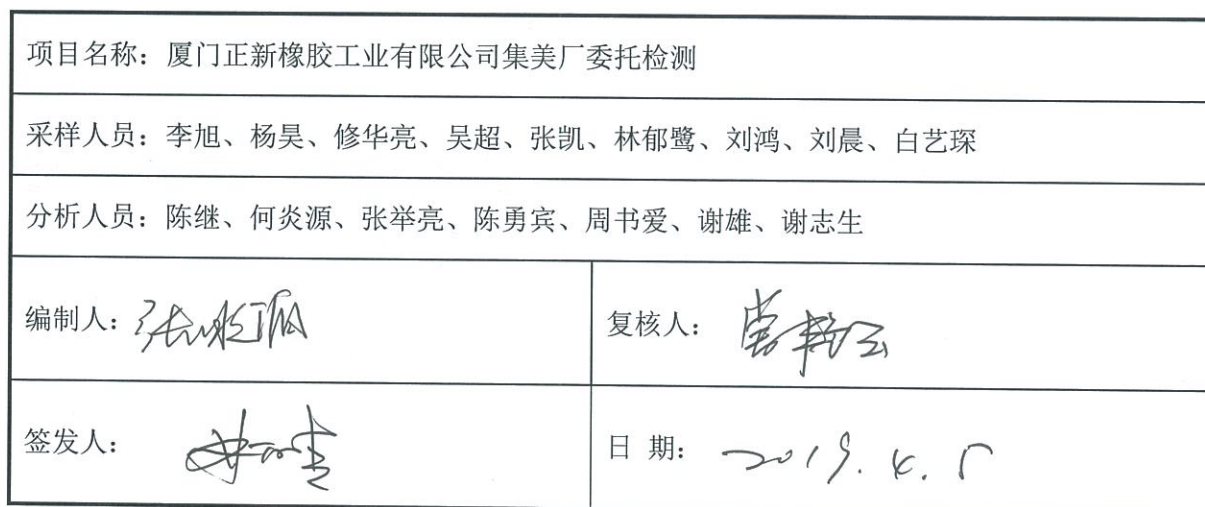 项目名称：厦门正新橡胶工业有限公司集美厂委托检测
采样人员：李旭、杨昊、修华亮、吴超、张凯、林郁鹭、刘鸿、刘晨、白艺琛
分析人员：陈继、何炎源、张举亮、陈勇宾、周书爱、谢雄、谢志生
编制人：
复核人：
签发人：
日 期：2019.4.5